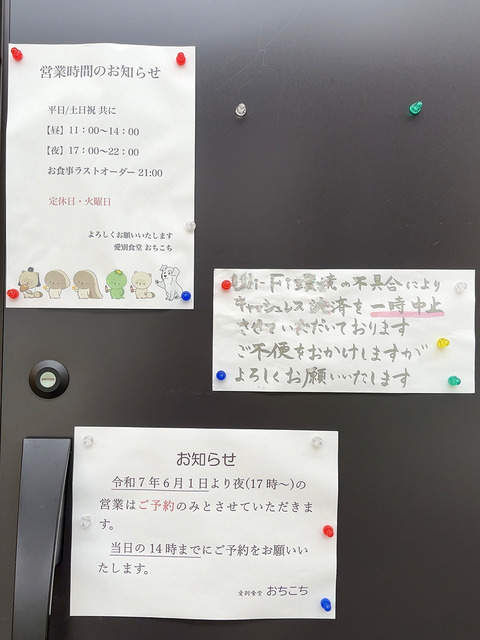 営業時間のお知らせ
平日/土日祝 共に
【昼】11：00～14：00
【夜】17：00～22：00
お食事ラストオーダー 21:00
定休日・火曜日
よろしくお願いいたします
愛別食堂 おちこち
Wi-Fi環境の不具合により
キャッシュレス決済を一時中止
させていただいております
ご不便をおかけしますが
よろしくお願いいたします
お知らせ
令和7年6月1日より夜(17時～)の
営業はご予約のみとさせていただきま
す。
当日の14時までにご予約をお願いい
たします。
愛別食堂 おちこち